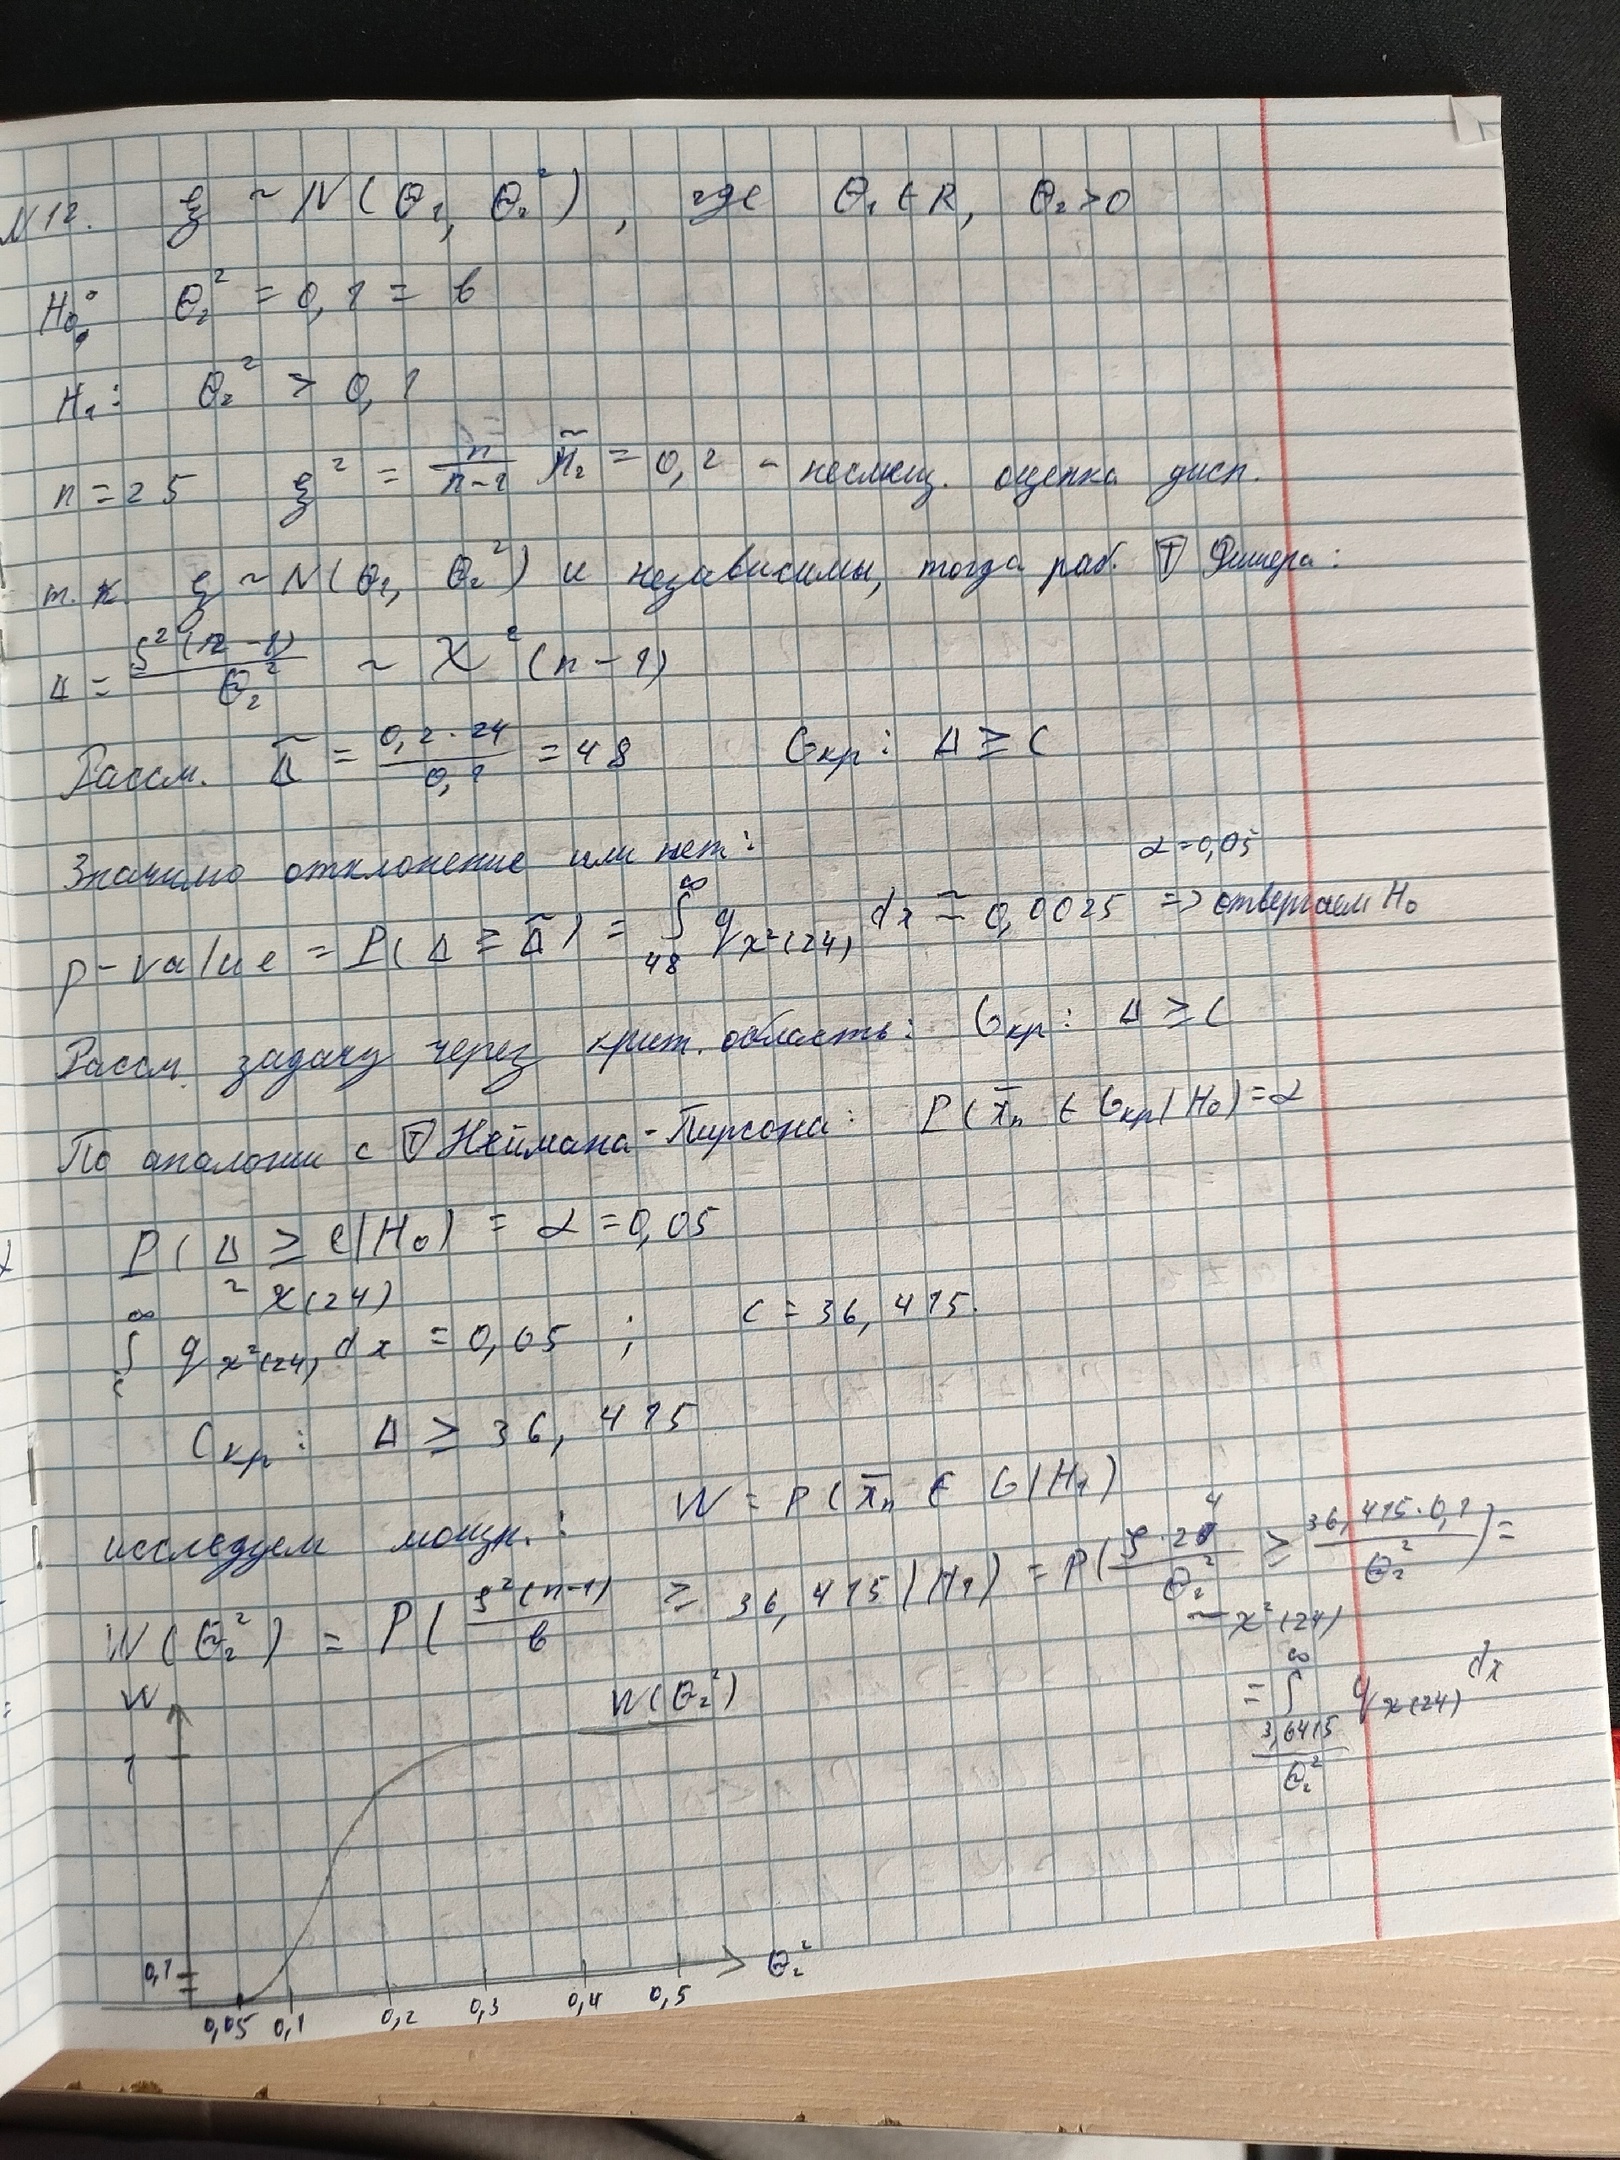 N12. ξ ~ N(θ₁, θ₂²), где θ₁ ∈ R, θ₂ > 0
H₀: θ₂² = 0,1 = b
H₁: θ₂² > 0,1
n = 25 ξ² = n/(n-1) μ̃₂ = 0,2 - несмещ. оценка дисп.
т.к. ξ ~ N(θ₁, θ₂²) и независимы, тогда раб. Ⓣ Фишера:
Δ = S²(n-1)/θ₂² ~ χ²(n-1)
Рассм. Δ̃ = 0,2·24/0,1 = 48 Gкр: Δ ≥ C
Значимо отклонение или нет: α = 0,05
p-value = P(Δ ≥ Δ̃) = ∫₄₈^∞ q χ²(24) dx ≈ 0,0025 => отвергаем H₀
Рассм. задачу через крит. область: Gкр: Δ ≥ C
По аналогии с Ⓣ Неймана-Пирсона: P(x̄ₙ ∈ Gкр | H₀) = α
P(Δ ≥ C | H₀) = α = 0,05
~ χ(24)
∫c^∞ q χ²(24) dx = 0,05 ; C = 36,415.
Gкр: Δ ≥ 36,415
исследуем мощн.: W = P(x̄ₙ ∈ G | H₁)
W(θ₂²) = P(S²(n-1)/b ≥ 36,415 | H₁) = P(S·24/θ₂² ≥ 36,415·0,1/θ₂²) =
~ χ²(24)
= ∫_{3,6415/θ₂²}^∞ q χ(24) dx
W W(θ₂²)
1
0,1 θ₂²
0,05 0,1 0,2 0,3 0,4 0,5